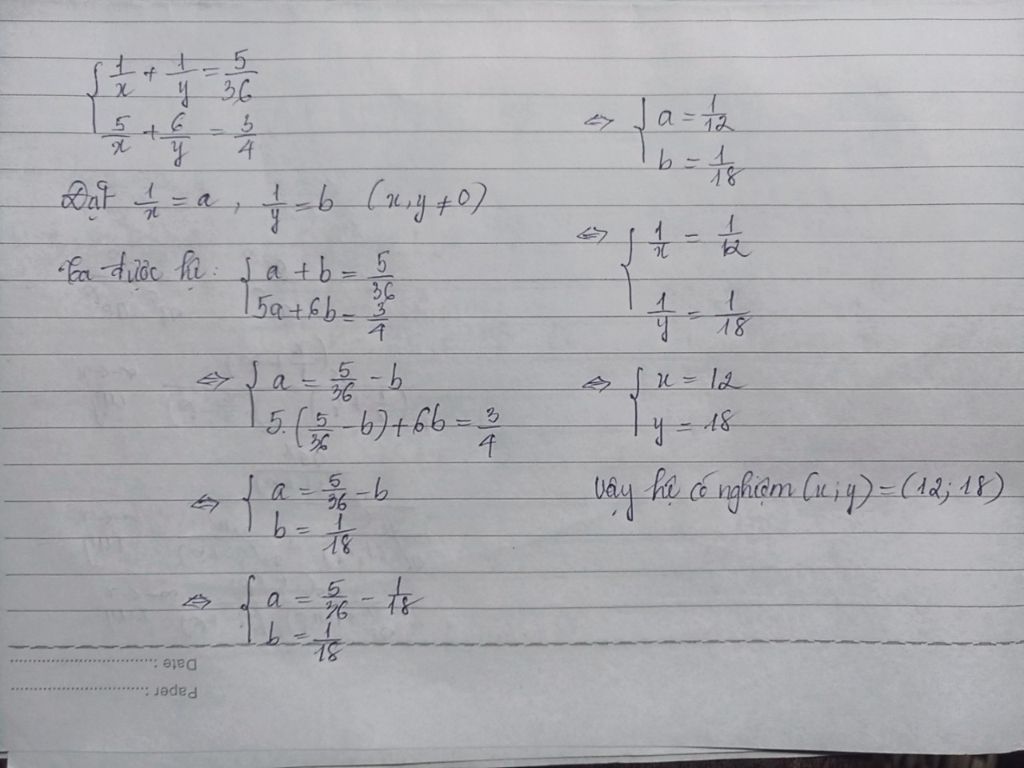 { 1/x + 1/y = 5/36
5/x + 6/y = 3/4
Đặt 1/x = a, 1/y = b (x, y ≠ 0)
Ta được hệ: { a + b = 5/36
5a + 6b = 3/4
⇔ { a = 5/36 - b
5.(5/36 - b) + 6b = 3/4
⇔ { a = 5/36 - b
b = 1/18
⇔ { a = 5/36 - 1/18
b = 1/18
⇔ { a = 1/12
b = 1/18
⇔ { 1/x = 1/12
1/y = 1/18
⇔ { x = 12
y = 18
Vậy hệ có nghiệm (x; y) = (12; 18)
Date :
Paper :